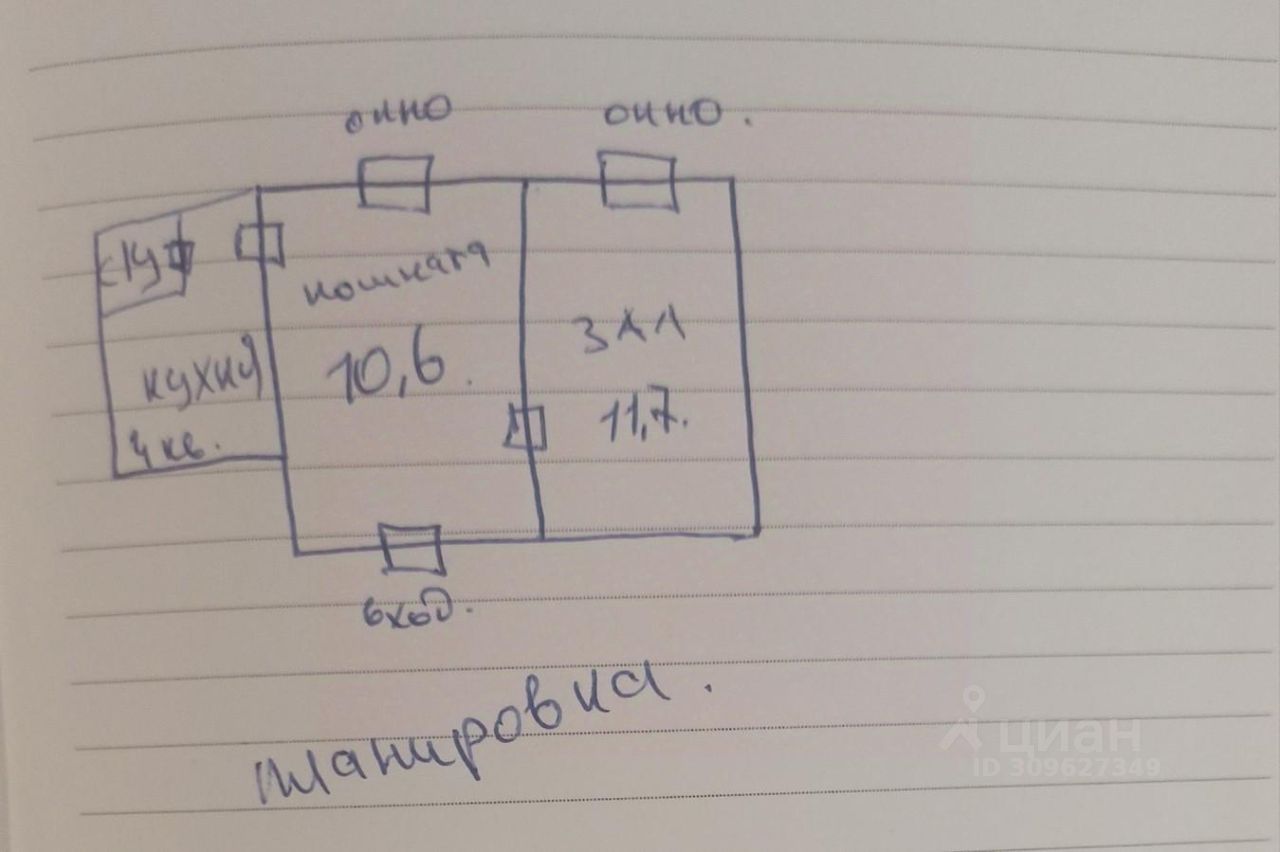 окно
окно.
с/у
комната
10,6.
зал
11,7.
кухня
4 кв.
вход.
планировка.
циан
ID 309627349